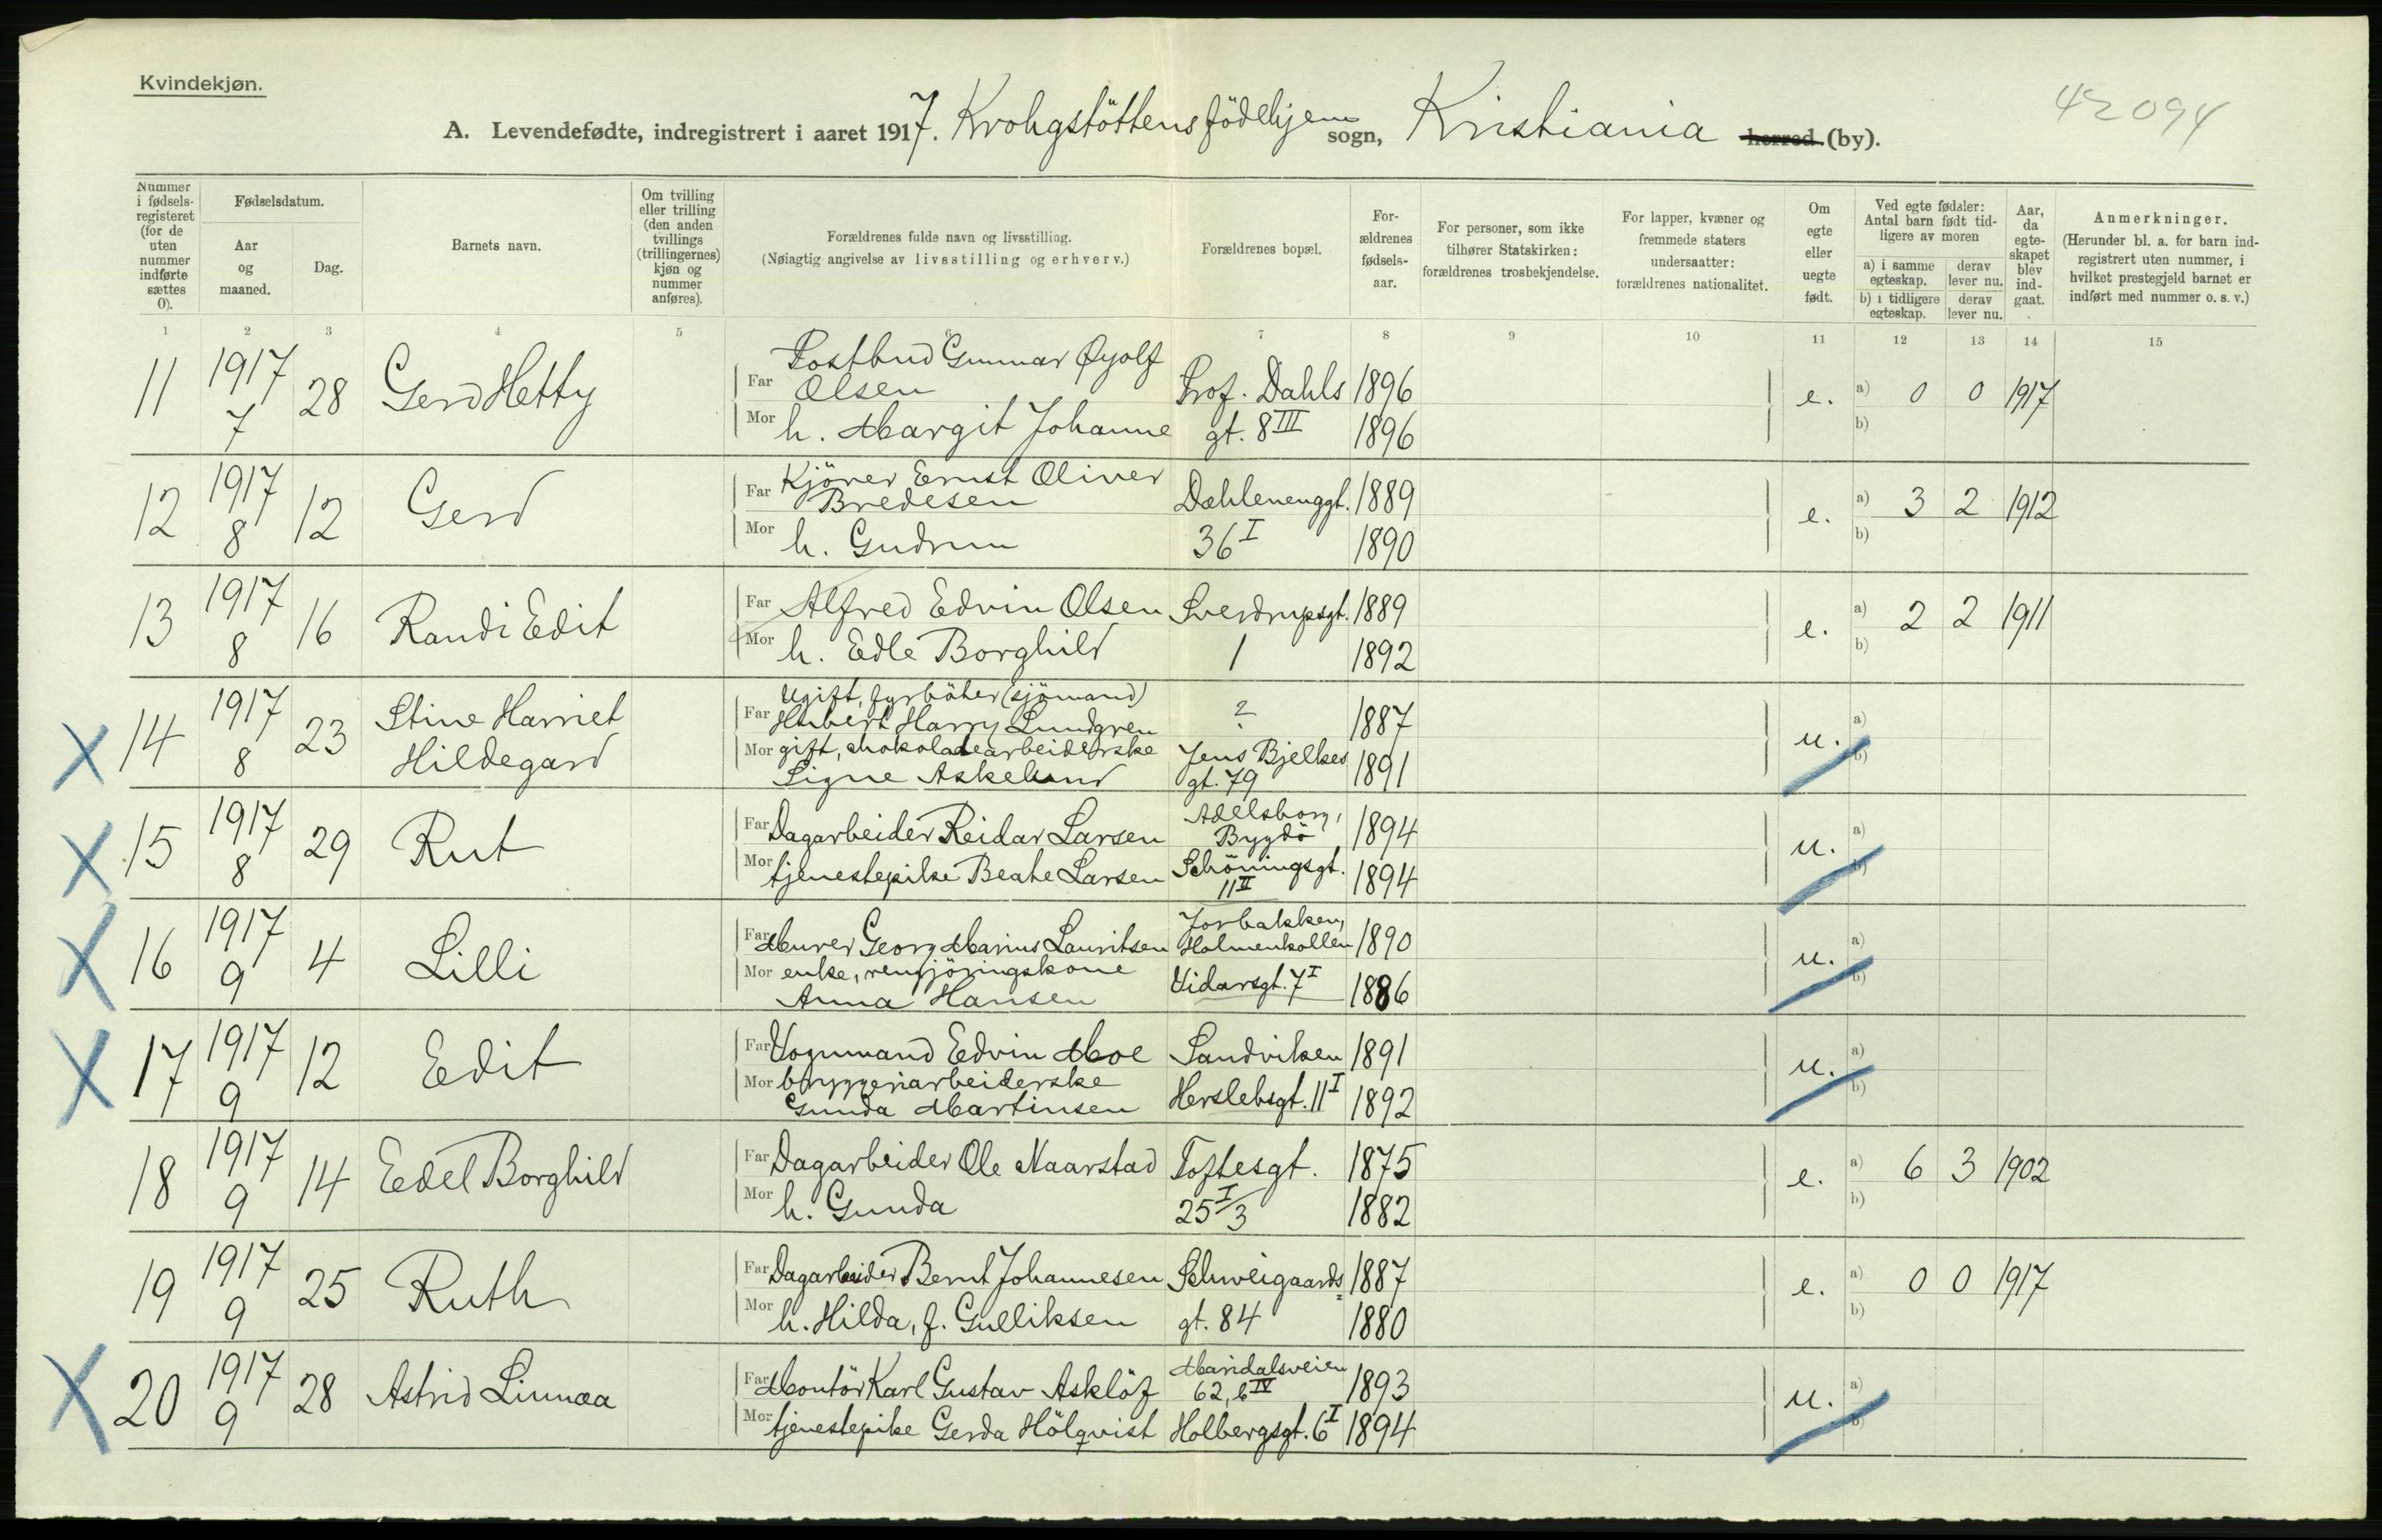 Kvindekjøn.
42094
A. Levendefødte, indregistrert i aaret 1917. Krohgstöttens födehjem sogn, Kristiania herred (by).
Nummer i fødsels-registeret (for de uten nummer indførte sættes 0).
Fødselsdatum.
Aar og maaned.
Dag.
Barnets navn.
Om tvilling eller trilling (den anden tvillings (trillingernes) kjøn og nummer anføres).
Forældrenes fulde navn og livsstilling.
(Nøiagtig angivelse av livsstilling og erhverv.)
Forældrenes bopæl.
For-ældrenes fødsels-aar.
For personer, som ikke tilhører Statskirken: forældrenes trosbekjendelse.
For lapper, kvæner og fremmede staters undersaatter: forældrenes nationalitet.
Om egte eller uegte født.
Ved egte fødsler: Antal barn født tid-ligere av moren
a) i samme egteskap. derav lever nu.
b) i tidligere egteskap. derav lever nu.
Aar, da egte-skapet blev ind-gaat.
Anmerkninger.
(Herunder bl. a. for barn ind-registrert uten nummer, i hvilket prestegjeld barnet er indført med nummer o. s. v.)
1 2 3 4 5 6 7 8 9 10 11 12 13 14 15
11 1917 7 28 Gerd Hetty
Far Postbud Gunnar Øyolf Olsen Prof. Dahls 1896
Mor h. Margit Johanne gt. 8 III 1896
e. a) 0 0 1917
b)
12 1917 8 12 Gerd
Far Kjörer Ernst Oliver Bredesen Dæhlenenggt. 1889
Mor h. Gudrun 36 I 1890
e. a) 3 2 1912
b)
13 1917 8 16 Randi Edit
Far Alfred Edvin Olsen Sverdrupsgt. 1889
Mor h. Edle Borghild 1 1892
e. a) 2 2 1911
b)
X 14 1917 8 23 Stine Harriet Hildegard
Far Ugift, fyrböter (sjömand) Hubert Harry Lundgren ? 1887
Mor gift, chokoladearbeiderske Signe Askelund Jens Bjelkes gt. 79 1891
u. a)
b)
X 15 1917 8 29 Rut
Far Dagarbeider Reidar Larsen Adelsborg, Bygdö 1894
Mor tjenestepike Beate Larsen Schöningsgt. 11 II 1894
u. a)
b)
X 16 1917 9 4 Lilli
Far Murer Georg Marius Lauritsen Jorbakken, Holmenkollen 1890
Mor enke, rengjöringskone Anna Hansen Vidarsgt. 7 I 1886
u. a)
b)
X 17 1917 9 12 Edit
Far Vognmand Edvin Moe Sandviken 1891
Mor bryggeriarbeiderske Gunda Martinsen Herslebsgt. 11 I 1892
u. a)
b)
18 1917 9 14 Edel Borghild
Far Dagarbeider Ole Naarstad Toftesgt. 1875
Mor h. Gunda 25 I/3 1882
e. a) 6 3 1902
b)
19 1917 9 25 Ruth
Far Dagarbeider Bernt Johannesen Schweigaards= 1887
Mor h. Hilda, f. Gulliksen gt. 84 1880
e. a) 0 0 1917
b)
X 20 1917 9 28 Astrid Linnæa
Far Montör Karl Gustav Asklöf Maridalsveien 62, b IV 1893
Mor tjenestepike Gerda Hölqvist Holbergsgt. 6 I 1894
u. a)
b)